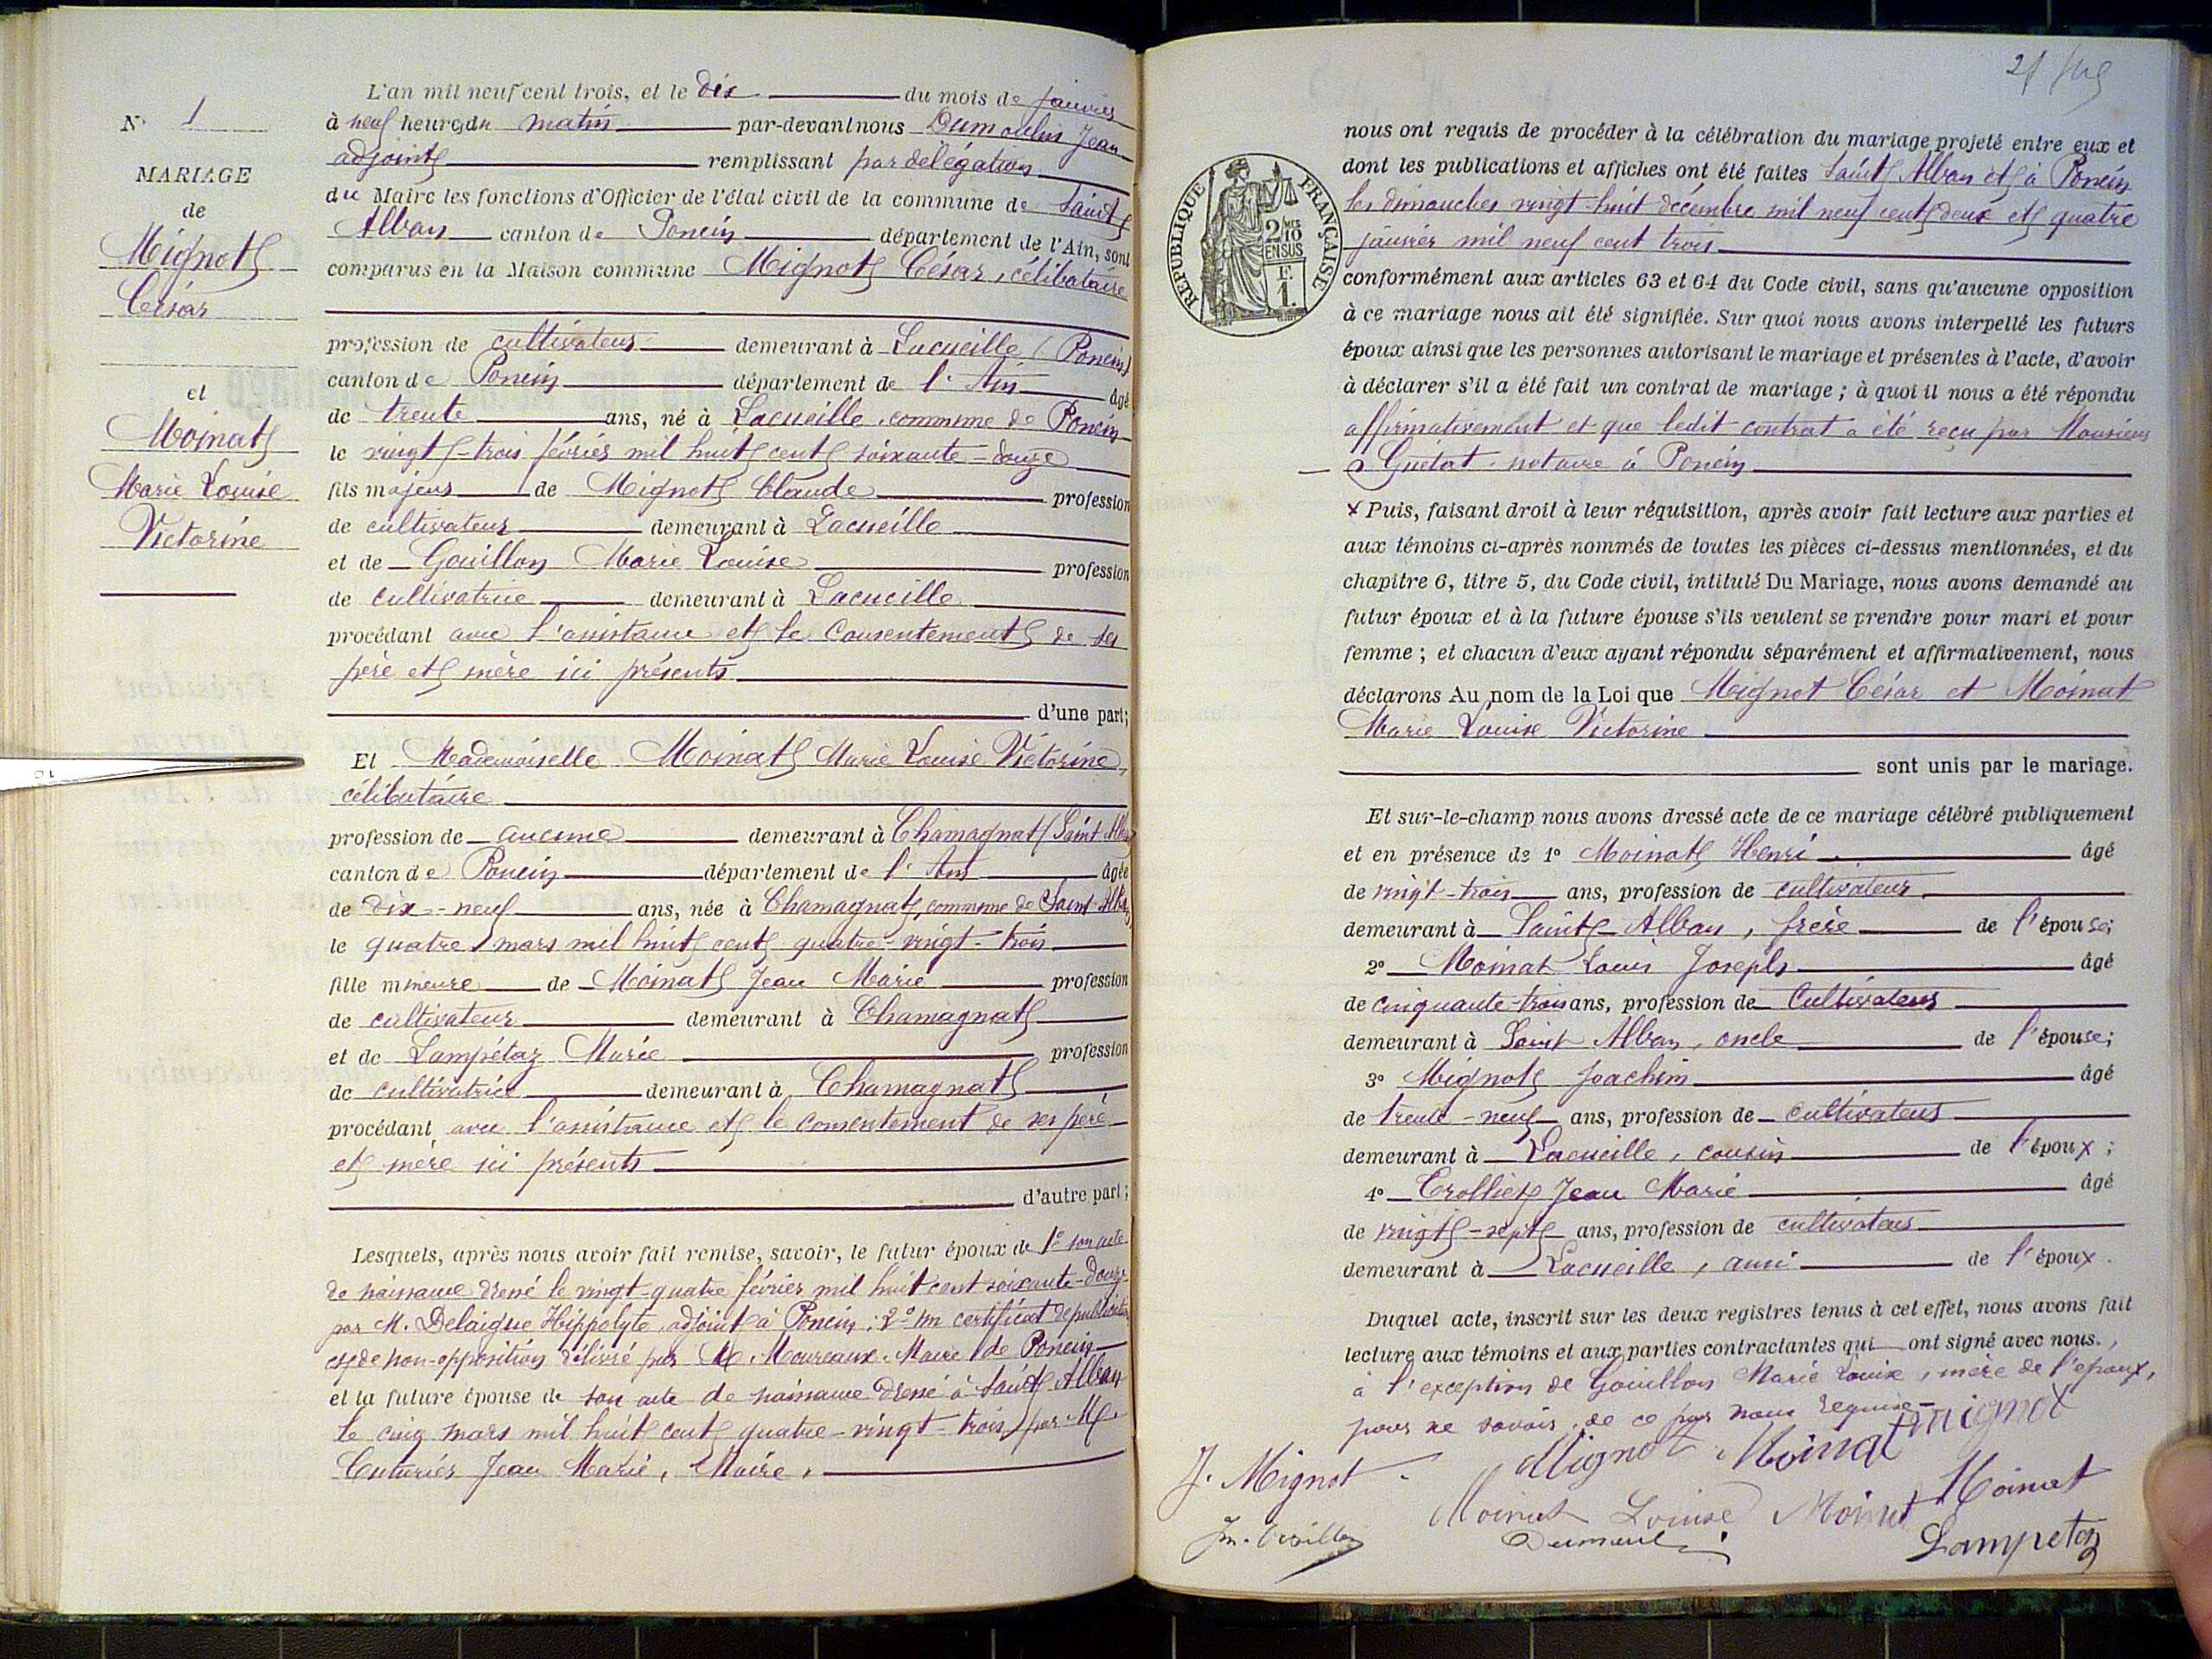 N° 1
MARIAGE
de
Mignot
César
et
Moinat
Marie Louise
Victorine
L'an mil neuf cent trois, et le dix du mois de janvier
à neuf heures du matin par-devant nous Dumoulin Jean
adjoint remplissant par délégation
du Maire les fonctions d'Officier de l'état civil de la commune de Saint
Alban canton de Poncin département de l'Ain, sont
comparus en la Maison commune Mignot César, célibataire
profession de cultivateur demeurant à Lacueille (Poncin)
canton de Poncin département de l'Ain âgé
de trente ans, né à Lacueille, commune de Poncin
le vingt-trois février mil huit cent soixante-douze
fils majeur de Mignot Claude profession
de cultivateur demeurant à Lacueille
et de Gouillon Marie Louise profession
de cultivatrice demeurant à Lacueille
procédant avec l'assistance et le consentement de ses
père et mère ici présents
d'une part;
Et Mademoiselle Moinat Marie Louise Victorine,
célibataire
profession de aucune demeurant à Chamagnat (Saint Alban
canton de Poncin département de l'Ain âgée
de dix-neuf ans, née à Chamagnat, commune de Saint Alban
le quatre mars mil huit cent quatre-vingt-trois
fille mineure de Moinat Jean Marie profession
de cultivateur demeurant à Chamagnat
et de Lampétaz Marie profession
de cultivatrice demeurant à Chamagnat
procédant avec l'assistance et le consentement de ses père
et mère ici présents
d'autre part;
Lesquels, après nous avoir fait remise, savoir, le futur époux de 1° son acte
de naissance dressé le vingt-quatre février mil huit cent soixante-douze
par M. Delaigue Hippolyte, adjoint à Poncin; 2° un certificat de publication
et de non-opposition délivré par M. Moureaux, Maire de Poncin
et la future épouse de son acte de naissance dressé à Saint Alban
le cinq mars mil huit cent quatre-vingt-trois par M.
Cuturier Jean Marie, Maire.
21
nous ont requis de procéder à la célébration du mariage projeté entre eux et
dont les publications et affiches ont été faites Saint Alban et à Poncin
les dimanches vingt-huit décembre mil neuf cent deux et quatre
janvier mil neuf cent trois
RÉPUBLIQUE FRANÇAISE
2/10 EN SUS
F.
1.
conformément aux articles 63 et 64 du Code civil, sans qu'aucune opposition
à ce mariage nous ait été signifiée. Sur quoi nous avons interpellé les futurs
époux ainsi que les personnes autorisant le mariage et présentes à l'acte, d'avoir
à déclarer s'il a été fait un contrat de mariage ; à quoi il nous a été répondu
affirmativement et que ledit contrat a été reçu par Monsieur
Guétat notaire à Poncin
x Puis, faisant droit à leur réquisition, après avoir fait lecture aux parties et
aux témoins ci-après nommés de toutes les pièces ci-dessus mentionnées, et du
chapitre 6, titre 5, du Code civil, intitulé Du Mariage, nous avons demandé au
futur époux et à la future épouse s'ils veulent se prendre pour mari et pour
femme ; et chacun d'eux ayant répondu séparément et affirmativement, nous
déclarons Au nom de la Loi que Mignot César et Moinat
Marie Louise Victorine
sont unis par le mariage.
Et sur-le-champ nous avons dressé acte de ce mariage célébré publiquement
et en présence de 1° Moinat Henri âgé
de vingt-trois ans, profession de cultivateur
demeurant à Saint Alban, frère de l'épouse;
2° Moinat Louis Joseph âgé
de cinquante-trois ans, profession de cultivateur
demeurant à Saint Alban, oncle de l'épouse;
3° Mignot Joachim âgé
de trente-neuf ans, profession de cultivateur
demeurant à Lacueille, cousin de l'époux ;
4° Crollier Jean Marie âgé
de vingt-sept ans, profession de cultivateur
demeurant à Lacueille, ami de l'époux.
Duquel acte, inscrit sur les deux registres tenus à cet effet, nous avons fait
lecture aux témoins et aux parties contractantes qui ont signé avec nous,
à l'exception de Gouillon Marie Louise, mère de l'époux,
pour ne savoir, de ce par nous requise
Mignot Moinat mignot
J. Mignot
Moinat Louise Moinat Moinat
Lampetaz